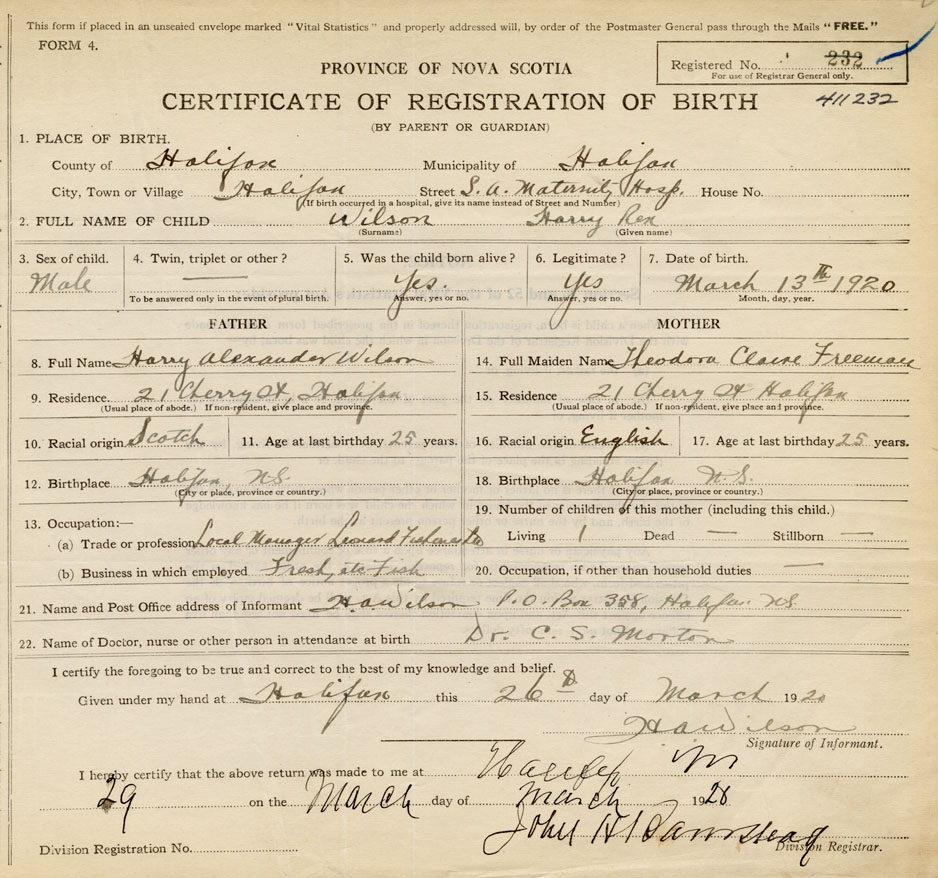 This form if placed in an unsealed envelope marked "Vital Statistics" and properly addressed will, by order of the Postmaster General pass through the Mails "FREE."
FORM 4.
Registered No. 232
For use of Registrar General only.
PROVINCE OF NOVA SCOTIA
CERTIFICATE OF REGISTRATION OF BIRTH
411232
(BY PARENT OR GUARDIAN)
1. PLACE OF BIRTH.
County of Halifax Municipality of Halifax
City, Town or Village Halifax Street S. A. Maternity Hosp. House No.
(If birth occurred in a hospital, give its name instead of Street and Number)
2. FULL NAME OF CHILD Wilson Harry Rex
(Surname) (Given name)
3. Sex of child. 4. Twin, triplet or other ? 5. Was the child born alive ? 6. Legitimate ? 7. Date of birth.
Male — Yes. Yes March 13th 1920
To be answered only in the event of plural birth. Answer, yes or no. Answer, yes or no. Month, day, year.
FATHER MOTHER
8. Full Name Harry Alexander Wilson 14. Full Maiden Name Theodora Claire Freeman
9. Residence. 21 Cherry St, Halifax 15. Residence 21 Cherry St Halifax
(Usual place of abode.) If non-resident, give place and province. (Usual place of abode.) If non-resident, give place and province.
10. Racial origin Scotch 11. Age at last birthday 25 years. 16. Racial origin English 17. Age at last birthday 25 years.
12. Birthplace Halifax, N.S. 18. Birthplace Halifax N.S.
(City or place, province or country.) (City or place, province or country.)
13. Occupation:— 19. Number of children of this mother (including this child.)
(a) Trade or profession Local Manager Leonard Fisheries Ltd Living 1 Dead — Stillborn —
(b) Business in which employed Fresh, etc Fish 20. Occupation, if other than household duties —
21. Name and Post Office address of Informant H. A. Wilson P.O. Box 358, Halifax NS.
22. Name of Doctor, nurse or other person in attendance at birth Dr. C. S. Morton
I certify the foregoing to be true and correct to the best of my knowledge and belief.
Given under my hand at Halifax this 26th day of March 1920
H A Wilson
Signature of Informant.
I hereby certify that the above return was made to me at Halifax
29 on the March day of March 1920
John
Division Registration No. Division Registrar.